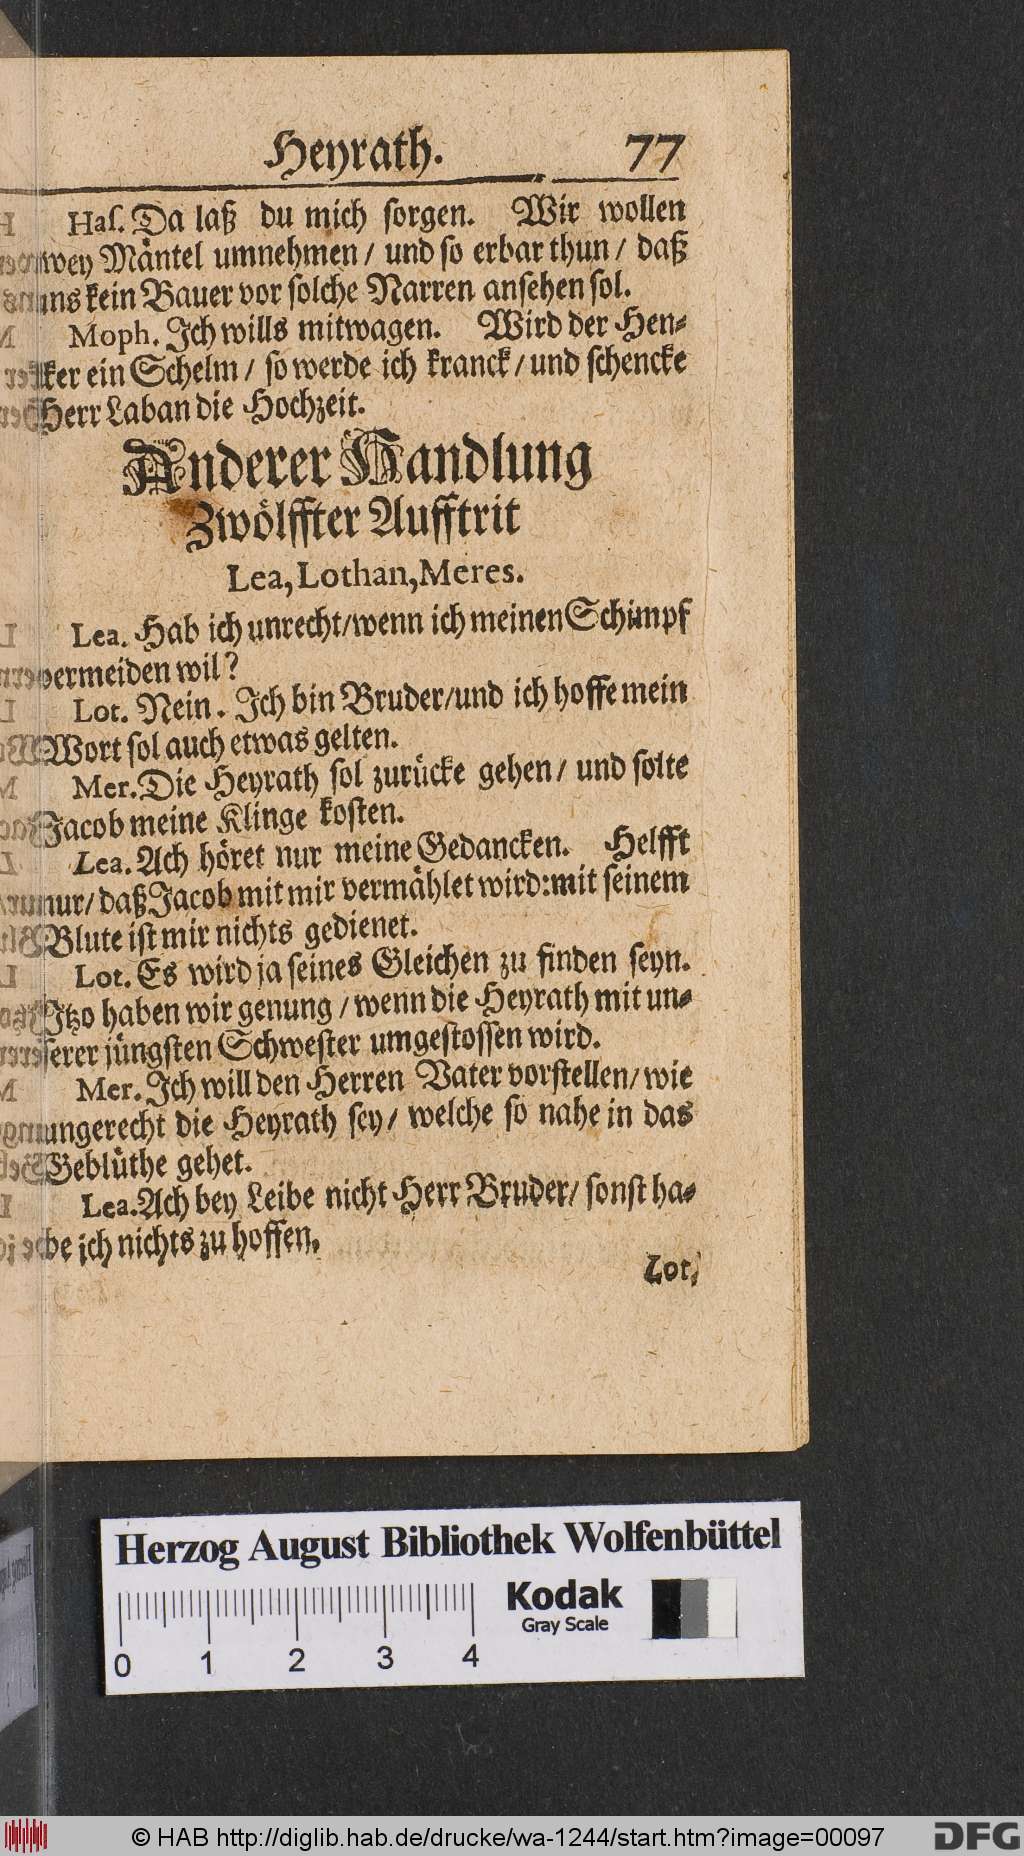 Heyrath. 77
Haſ. Da laß du mich ſorgen. Wir wollen
zwey Mäntel umnehmen / und ſo erbar thun / daß
uns kein Bauer vor ſolche Narren anſehen ſol.
Moph. Ich wills mitwagen. Wird der Hen-
ker ein Schelm / ſo werde ich kranck / und ſchencke
Herr Laban die Hochzeit.
Anderer Handlung
Zwölffter Aufftrit
Lea, Lothan, Meres.
Lea. Hab ich unrecht/wenn ich meinen Schimpf
vermeiden wil?
Lot. Nein. Ich bin Bruder/und ich hoffe mein
Wort ſol auch etwas gelten.
Mer. Die Heyrath ſol zurücke gehen / und ſolte
Jacob meine Klinge koſten.
Lea. Ach höret nur meine Gedancken. Helfft
nur/ daß Jacob mit mir vermählet wird: mit ſeinem
Blute iſt mir nichts gedienet.
Lot. Es wird ja ſeines Gleichen zu finden ſeyn.
Itzo haben wir genung / wenn die Heyrath mit un-
ſerer jüngſten Schweſter umgeſtoſſen wird.
Mer. Ich will den Herren Vater vorſtellen/ wie
ungerecht die Heyrath ſey / welche ſo nahe in das
Geblüthe gehet.
Lea. Ach bey Leibe nicht Herr Bruder/ ſonſt ha-
be ich nichts zu hoffen.
Lot.
Herzog August Bibliothek Wolfenbüttel
Kodak
Gray Scale
0 1 2 3 4
© HAB http://diglib.hab.de/drucke/wa-1244/start.htm?image=00097
DFG